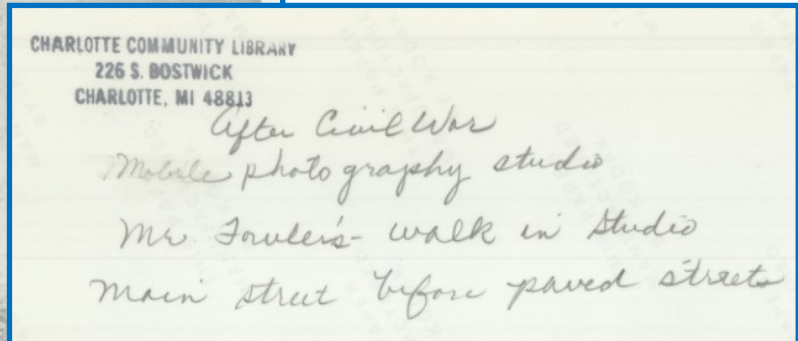 CHARLOTTE COMMUNITY LIBRARY
226 S. BOSTWICK
CHARLOTTE, MI 48813
After Civil War
Mobile photography studio
Mr Fowler's - walk in studio
Main street before paved streets